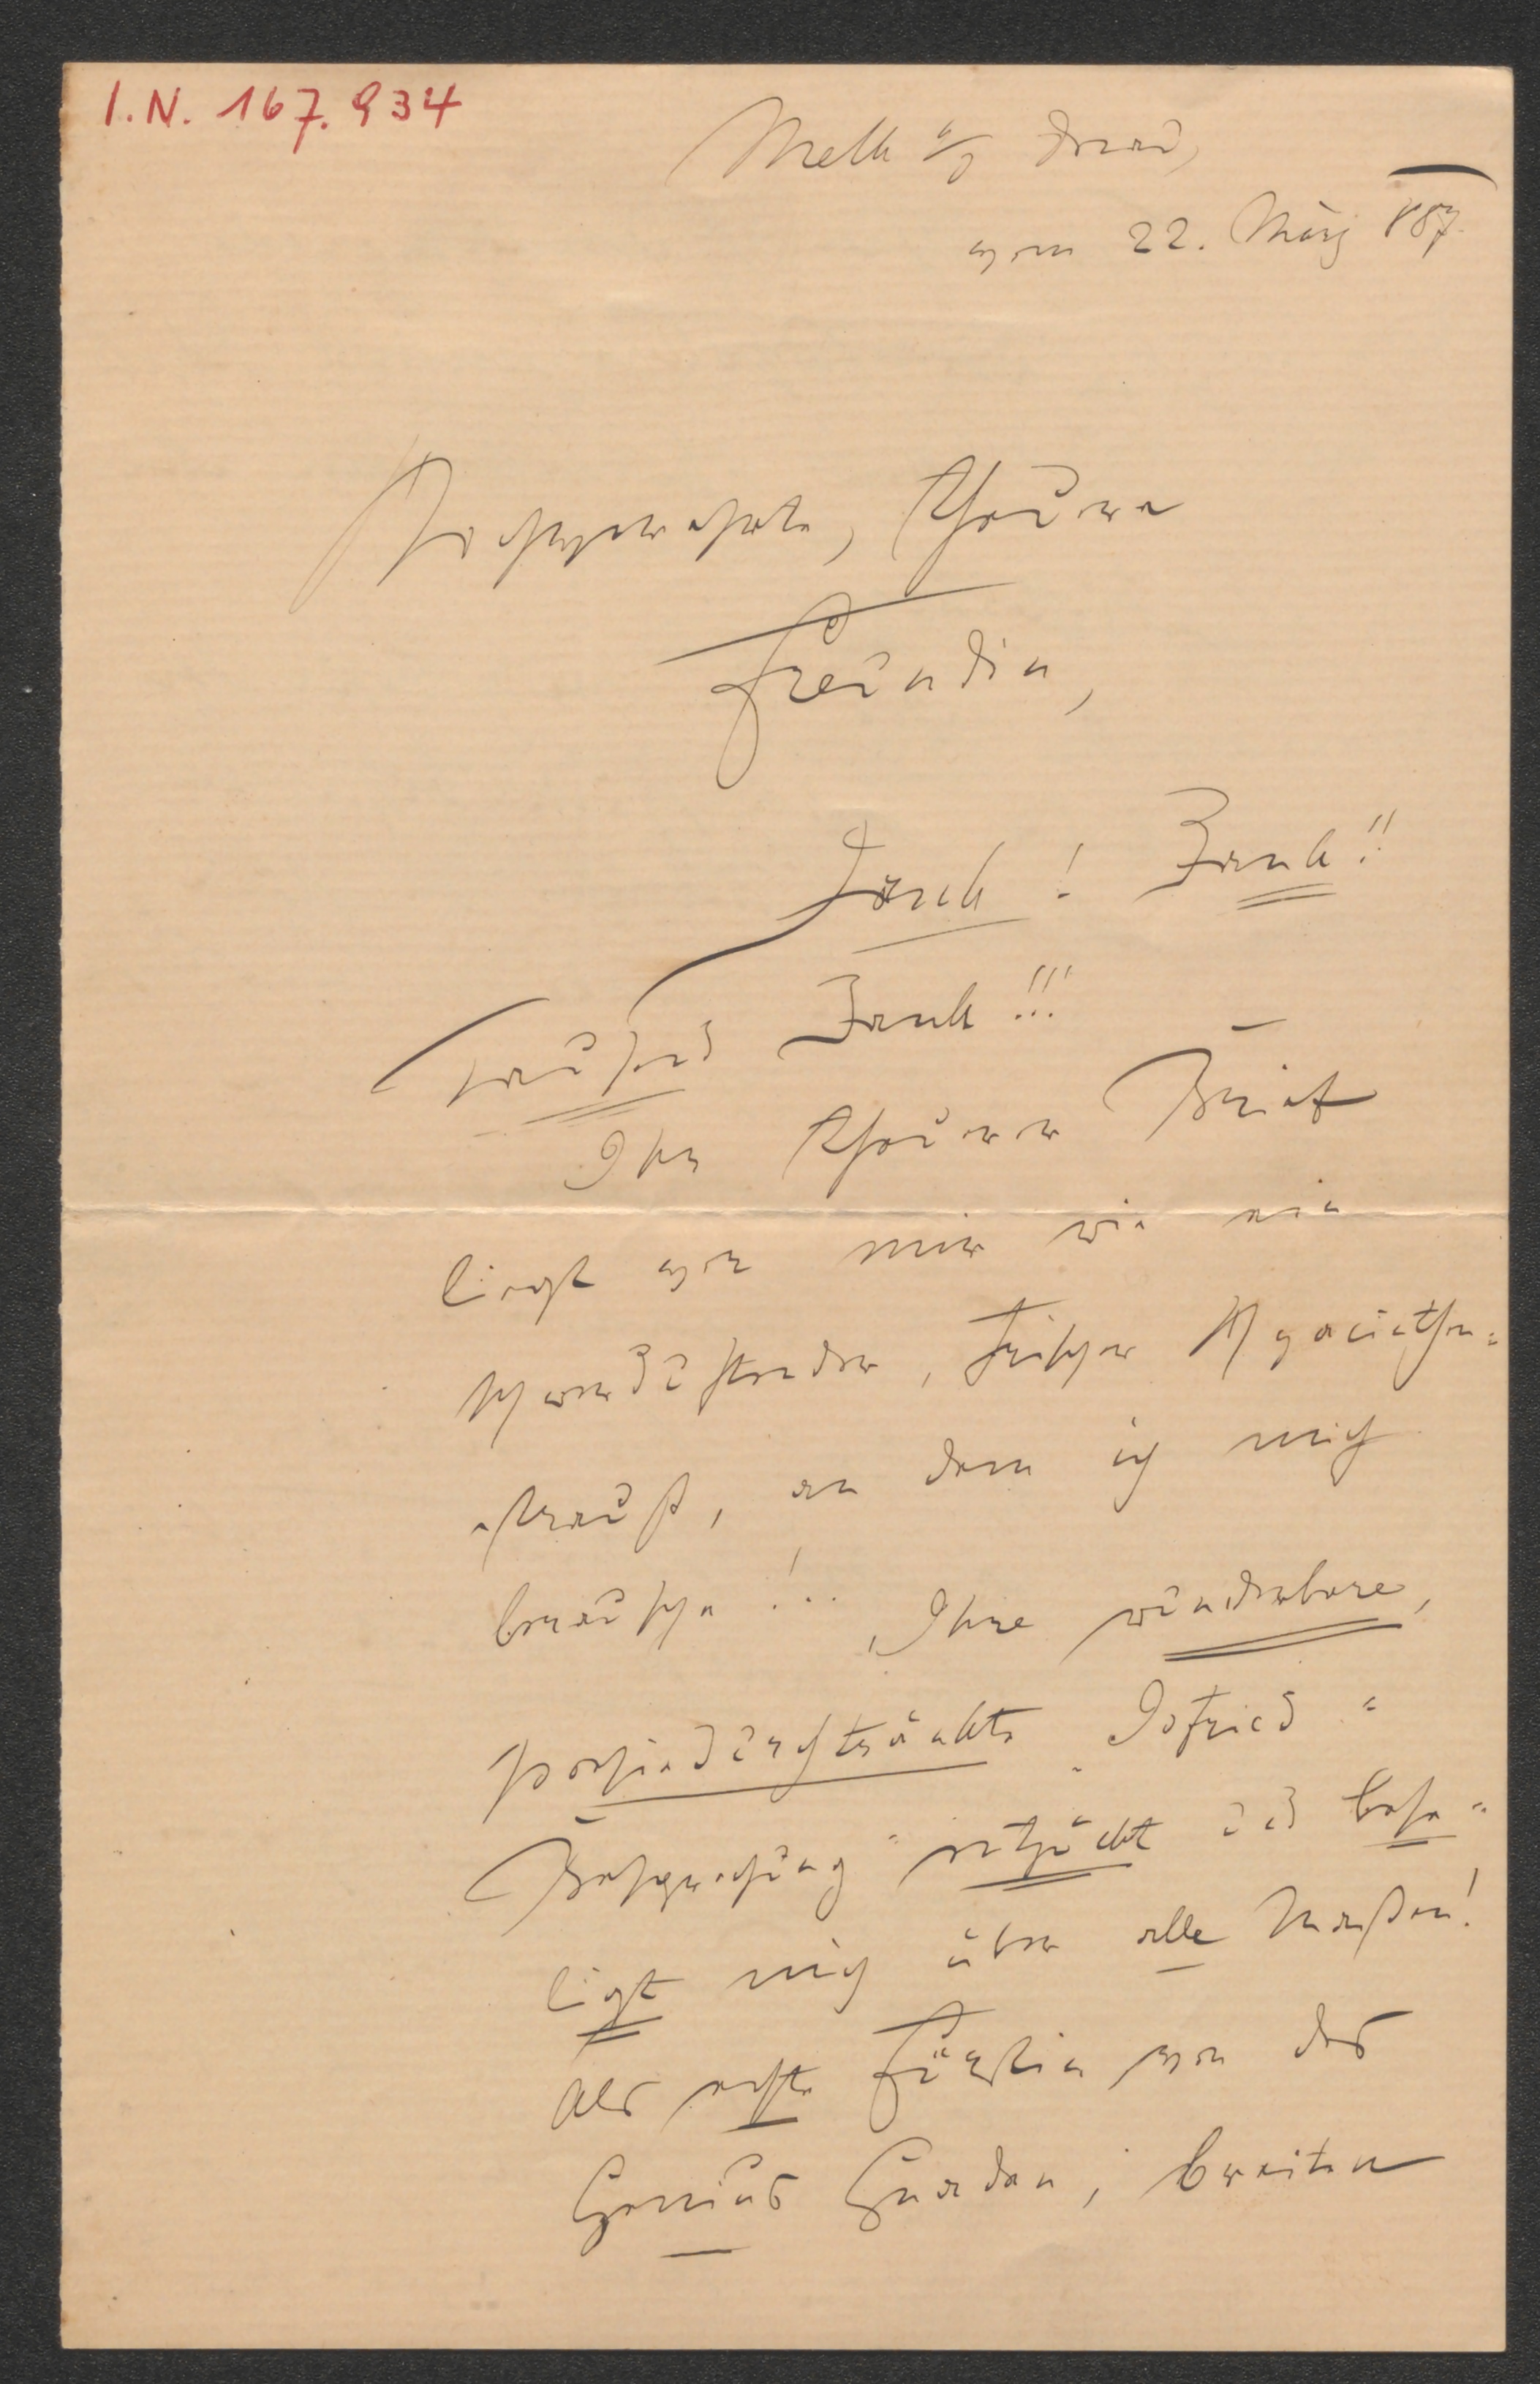 I.N. 167.934
Melk a/d Donau,
vom 22. März 887.
Hochgeehrte, theure
Freundin,
Dank! Dank!!
tausend Dank!!!
Ihr theurer Brief
liegt vor mir wie ein
schwerduftender, frischer Hyacinthen-
strauß, an dem ich mich
berausche!.. Ihre wunderbare,
poesiedurchtränkte „Jofrid"
Besprechung entzückt und bese-
ligt mich über alle Maßen!
Als echte Fürstin von des
Genius Gnaden, breiten